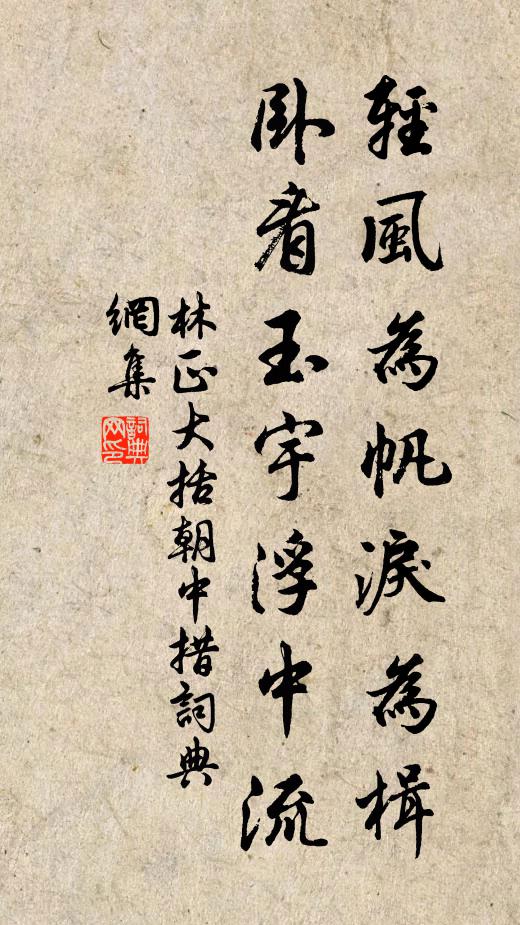 輕風為帆淚為楫
臥看玉宇浮中流
林正大括朝中措詞典
網集
詞典網印